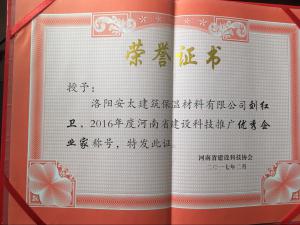 荣誉证书
授予：
洛阳安太建筑保温材料有限公司刘红
卫，2016年度河南省建设科技推广优秀企
业家称号，特发此证。
河南省建设科技协会
二〇一七年二月